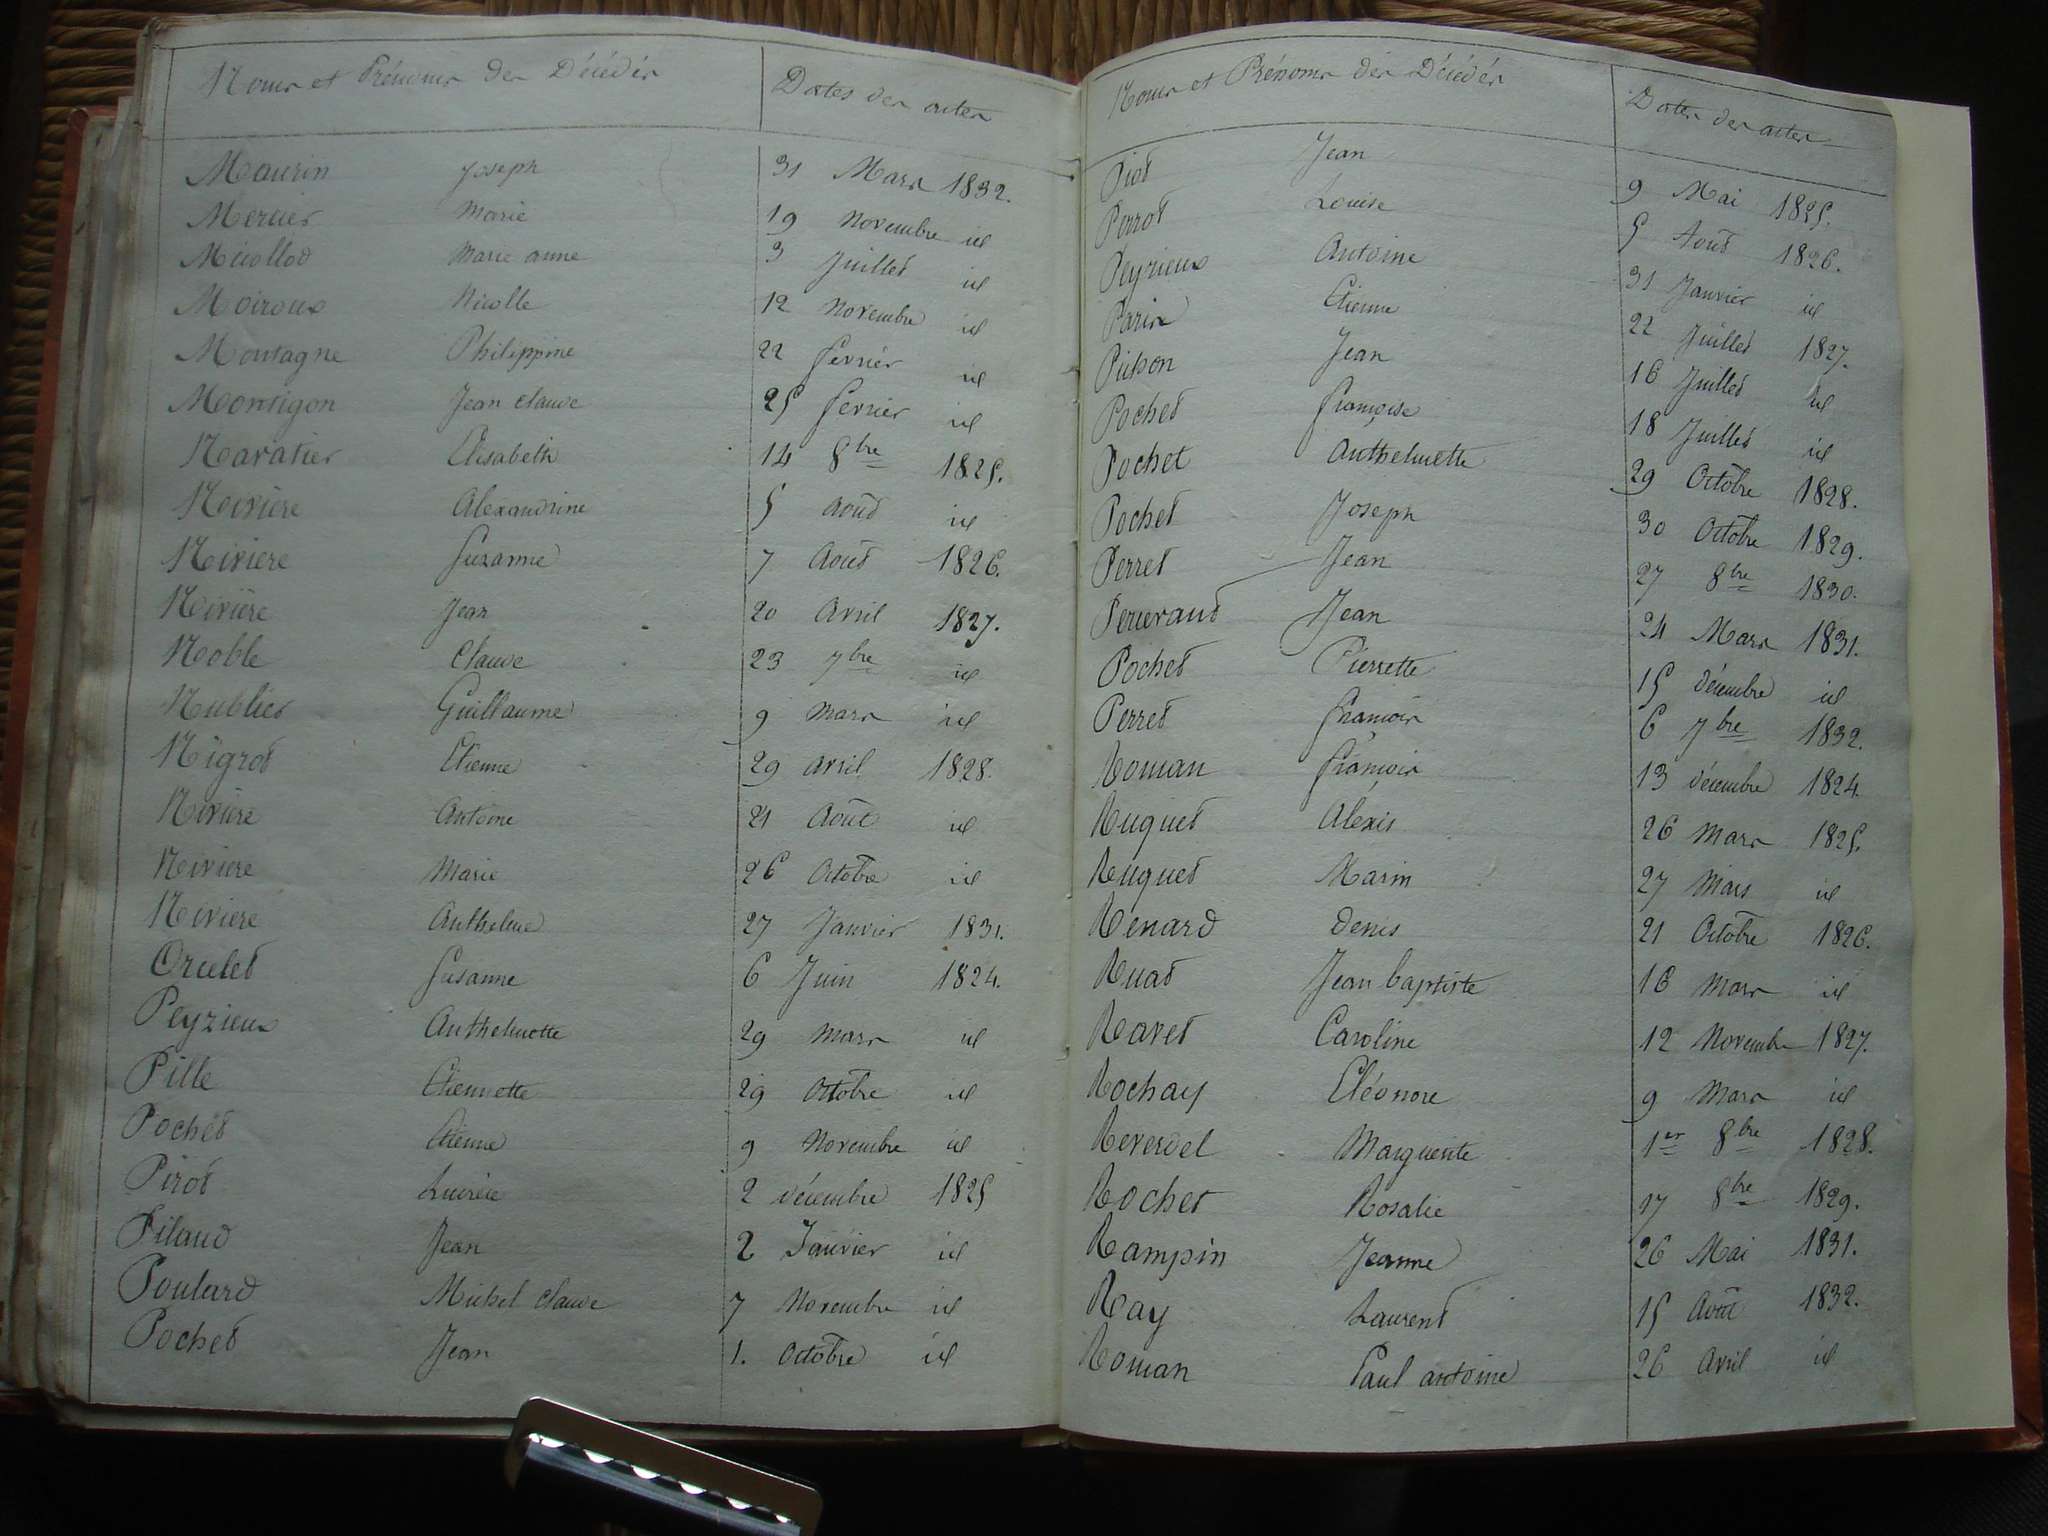 Noms et Prénoms des Décédés Dates des actes
Maurin Joseph 31 Mars 1832.
Mercier Marie 19 Novembre id
Micollod Marie anne 3 Juillet id
Moiroux Nicolle 12 Novembre id
Montagne Philippine 22 fevrier id
Montigon Jean Claude 25 fevrier id
Navatier Elisabeth 14 8bre 1825.
Niviere Alexandrine 5 Aout id
Niviere Suzanne 7 Aout 1826.
Niviere Jean 20 Avril 1827.
Noble Claude 23 7bre id
Nublier Guillaume 9 Mars id
Nigrot Etienne 29 Avril 1828.
Niviere Antoine 21 Août id
Niviere Marie 26 Octobre id
Niviere Anthelme 27 Janvier 1831.
Orcelet Susanne 6 Juin 1824.
Peyzieux Anthelmette 29 Mars id
Pille Etiennette 29 Octobre id
Pochet Etienne 9 Novembre id
Pirot Lucrèce 2 décembre 1825
Pilaud Jean 2 Janvier id
Poulard Michel Claude 7 Novembre id
Pochet Jean 1. Octobre id
Noms et Prénoms des Décédés Dates des actes
Piot Jean 9 Mai 1825.
Perrot Louise 5 Aout 1826.
Peyzieux Antoine 31 Janvier id
Paris Etienne 22 Juillet 1827.
Pichon Jean 16 Juillet id
Pochet françoise 18 Juillet id
Pochet Anthelmette 29 Octobre 1828.
Pochet Joseph 30 Octobre 1829.
Perret Jean 27 8bre 1830.
Jean 24 Mars 1831.
Pochet Pierrette 15 décembre id
Perret françois 6 7bre 1832.
Roman françois 13 décembre 1824.
Ruquet Alexis 26 Mars 1825.
Ruquet Marin 27 Mars id
Renard Denis 21 Octobre 1826.
Ruat Jean baptiste 16 Mars id
Ravet Caroline 12 Novembre 1827.
Rochay Eléonore 9 Mars id
Reverdel Marguerite 1er 8bre 1828.
Rochet Rosalie 27 8bre 1829.
Rampin Jeanne 26 Mai 1831.
Ray Laurent 15 Août 1832.
Roman Paul antoine 26 Avril id